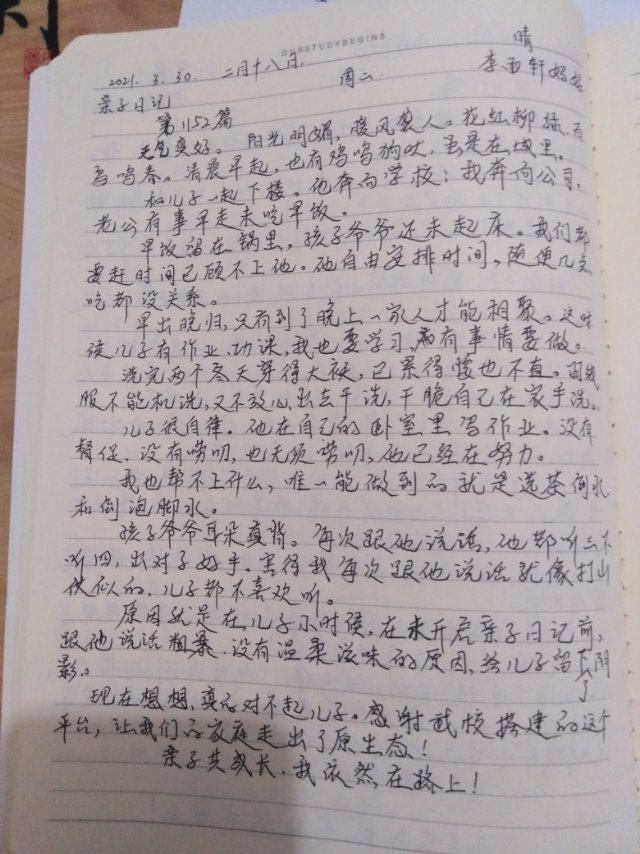 OURSTUDYBEGINS
晴
2021. 3. 30. 二月十八日. 周二. 李亚轩妈妈
亲子日记
第1152篇
天气真好。阳光明媚，暖风袭人。花红柳绿，百
鸟鸣春。清晨早起，也有鸡鸣狗吠，虽是在城里。
和儿子一起下楼。他奔向学校；我奔向公司。
老公有事早走未吃早饭。
早饭留在锅里，孩子爷爷还未起床。我们都
要赶时间已顾不上他。他自由安排时间，随便几点
吃都没关系。
早出晚归，只有到了晚上一家人才能相聚。这时
侯儿子有作业、功课，我也要学习，都有事情要做。
洗完两个冬天穿得大袄，已累得腰也不直。羽绒
服不能机洗，又不放心出去干洗，干脆自己在家手洗。
儿子很自律。他在自己的卧室里写作业。没有
督促、没有唠叨，也无须唠叨，他已经在努力。
我也帮不上什么，唯一能做到的就是送茶倒水
和倒泡脚水。
孩子爷爷耳朵真背。每次跟他说话，他都听三不
听四，出对子好手。害得我每次跟他说话就像打山
伏似的，儿子都不喜欢听。
原因就是在儿子小时侯，在未开启亲子日记前，
跟他说话粗暴、没有温柔滋味的原因，给儿子留下了阴
影。
现在想想，真心对不起儿子。感谢武校搭建的这个
平台，让我们的家庭走出了原生态！
亲子共成长，我依然在路上！